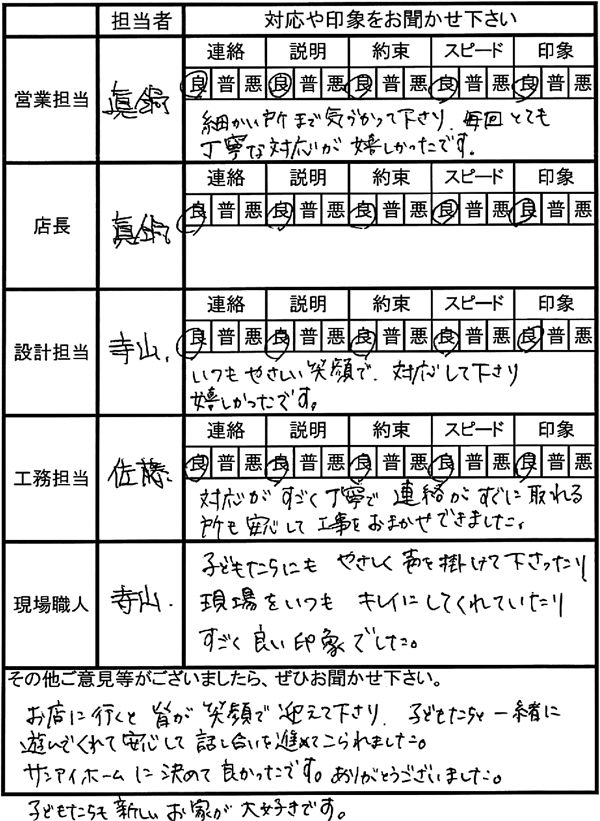 担当者 対応や印象をお聞かせ下さい
営業担当 眞鍋
連絡 説明 約束 スピード 印象
良 普 悪 良 普 悪 良 普 悪 良 普 悪 良 普 悪
細かい所まで気づかって下さり、毎回とても
丁寧な対応が嬉しかったです。
店長 眞鍋
連絡 説明 約束 スピード 印象
良 普 悪 良 普 悪 良 普 悪 良 普 悪 良 普 悪
設計担当 寺山
連絡 説明 約束 スピード 印象
良 普 悪 良 普 悪 良 普 悪 良 普 悪 良 普 悪
いつもやさしい笑顔で、対応して下さり
嬉しかったです。
工務担当 佐藤
連絡 説明 約束 スピード 印象
良 普 悪 良 普 悪 良 普 悪 良 普 悪 良 普 悪
対応がすごく丁寧で連絡がすぐに取れる
所も安心して工事をおまかせできました。
現場職人 寺山
子どもたちにもやさしく声を掛けて下さったり
現場をいつもキレイにしてくれていたり
すごく良い印象でした。
その他ご意見等がございましたら、ぜひお聞かせ下さい。
お店に行くと皆が笑顔で迎えて下さり、子どもたちと一緒に
遊んでくれて安心して話し合いを進めてこられました。
サンアイホームに決めて良かったです。ありがとうございました。
子どもたちも新しいお家が大好きです。